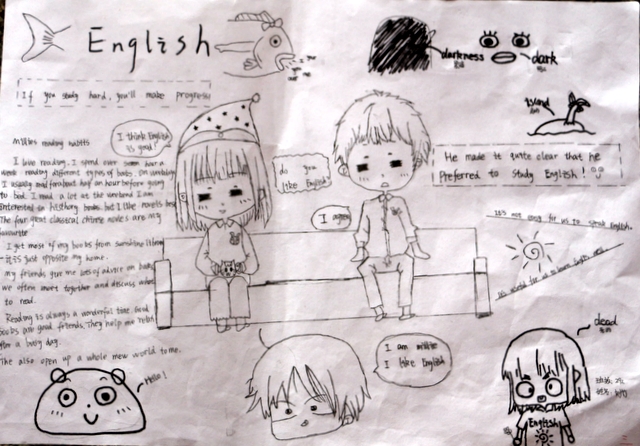 English
If you study hard, you'll make progress
Millie's reading habits
I love reading. I spend over an hour a
week reading different types of books. On weekdays
I usually read for about half an hour before going
to bed. I read a lot at the weekend I am
interested in history books but I like novels best
The four great classical chinese novels are my
favourite
I get most of my books from
it is just opposite my home.
my friends give me lots of advice on books
we often meet together and discuss what
to read.
Reading is always a wonderful time Good
books are good friends. They help me relax
after a busy day.
The also open up a whole new world to me.
I think English
is good!
do you
like English
I agree
darkness
dark
island
He made it quite clear that he
Preferred to study English!
It's not easy for us to speak English.
Hello!
I am millie
I like English
dead
English